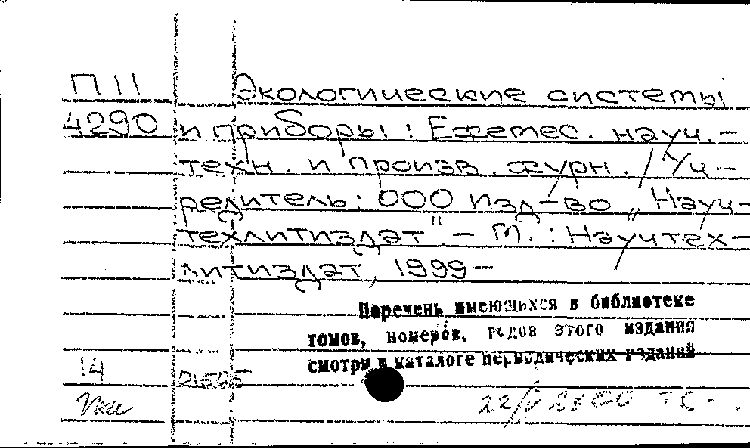 П11 Экологические системы
4290 и приборы: Ежемес. науч.-
техн. и произв. журн. / Уч-
редитель: ООО Изд-во "Науч-
техлитиздат". - М.: Научтех-
литиздат, 1999-
Перечень имеющихся в библиотеке
томов, номеров, годов этого издания
смотри в каталоге периодических изданий
14